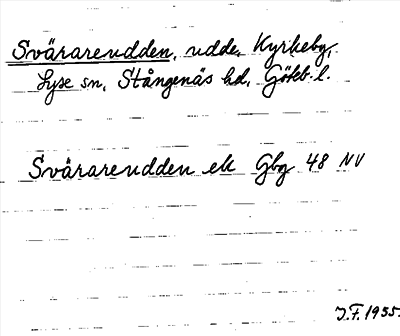 Svärareudden, udde, Kyrkeby,
Lyse sn, Stångenäs hd, Göteb. l.
Svärareudden ek Gbg 48 NV
J.F. 1955.